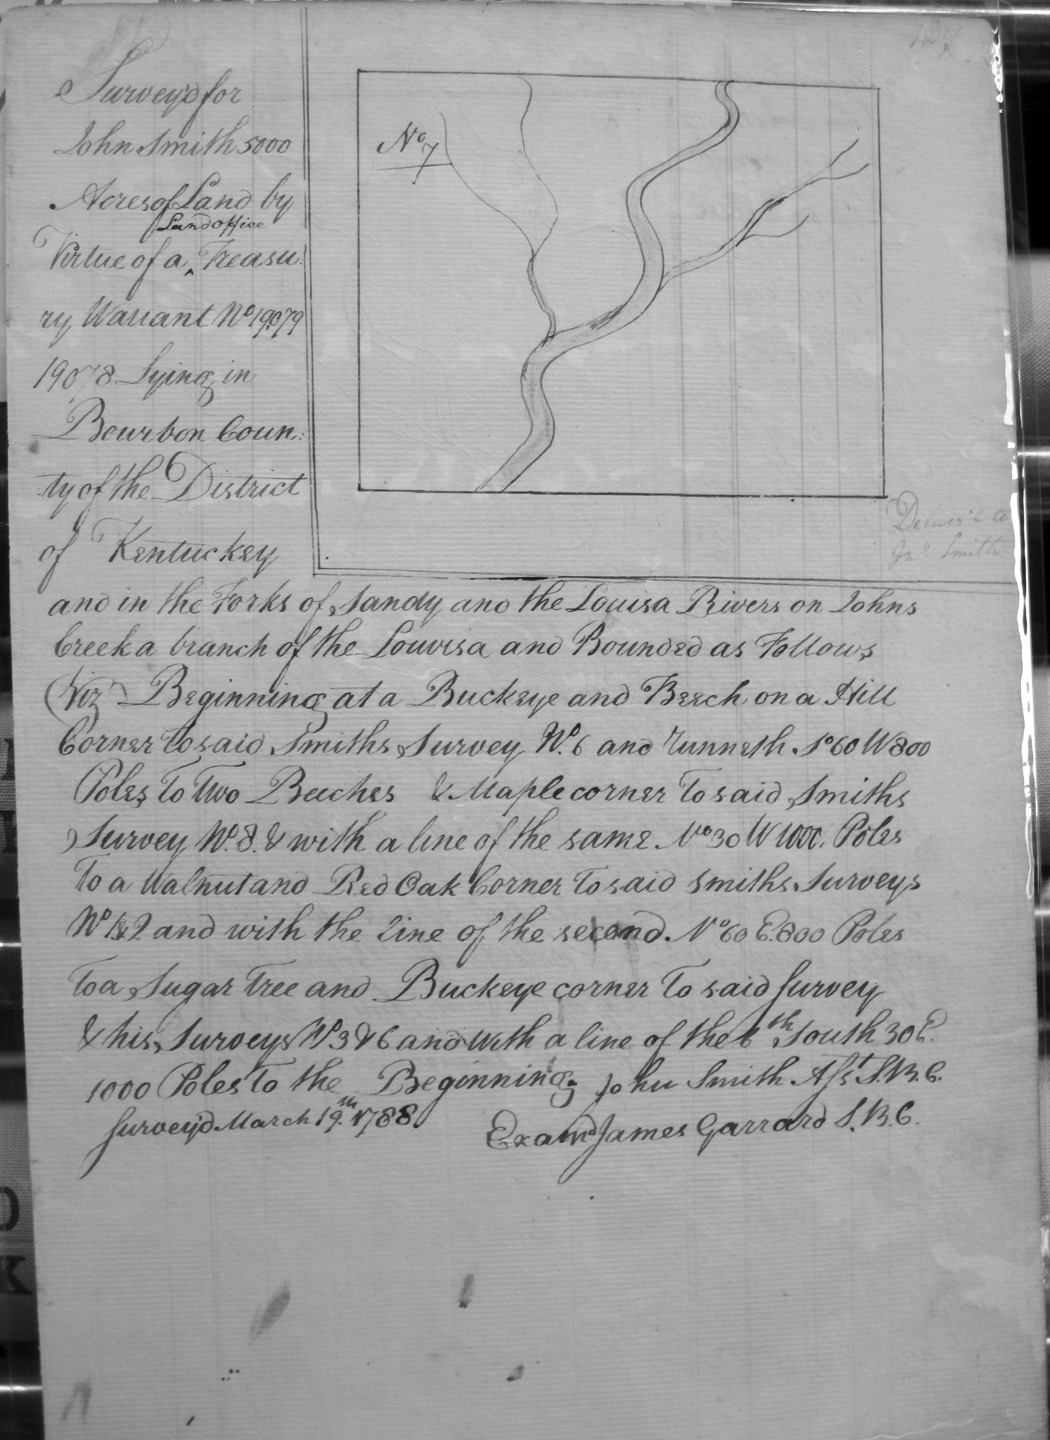 Survey'd for
John Smith 5000
Acres of Land by
Land office
Virtue of a ‸ Treasu:
ry Warrant No 19079
19078 Lying in
Bourbon Coun:
ty of the District
of Kentuckey
No 7
Deliver'd to
Jno Smith
and in the Forks of Sandy and the Louisa Rivers on Johns
Creek a branch of the Louvisa and Bounded as Follows
(Viz) Beginning at a Buckeye and Beech on a Hill
Corner to said Smiths Survey No. 6 and runneth So 60 W 800
Poles To Two Beeches & Maple corner To said Smiths
Survey No. 8. & with a line of the same No 30 W 1000. Poles
To a Walnut and Red Oak Corner To said Smiths Surveys
No 1 & 2 and with the line of the second. No 60 E. 800 Poles
To a Sugar Tree and Buckeye corner To said Survey
& his Surveys No 3 & 6 and with a line of the 6th South 30 E.
1000 Poles To the Beginning John Smith Asst. S.B.C.
Survey'd March 19th 1788
Examd James Garrard S.B.C.